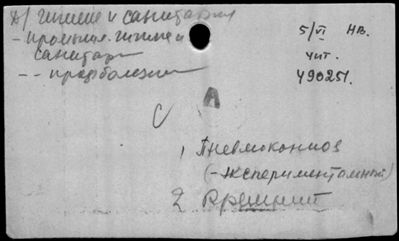 А/ гигиена и санитария
- промышл. гигиена и
санитар
-- профболезни
5/VI НВ.
чит.
490251.
А
1 Пневмокониоз
(-экспериментальный)
2